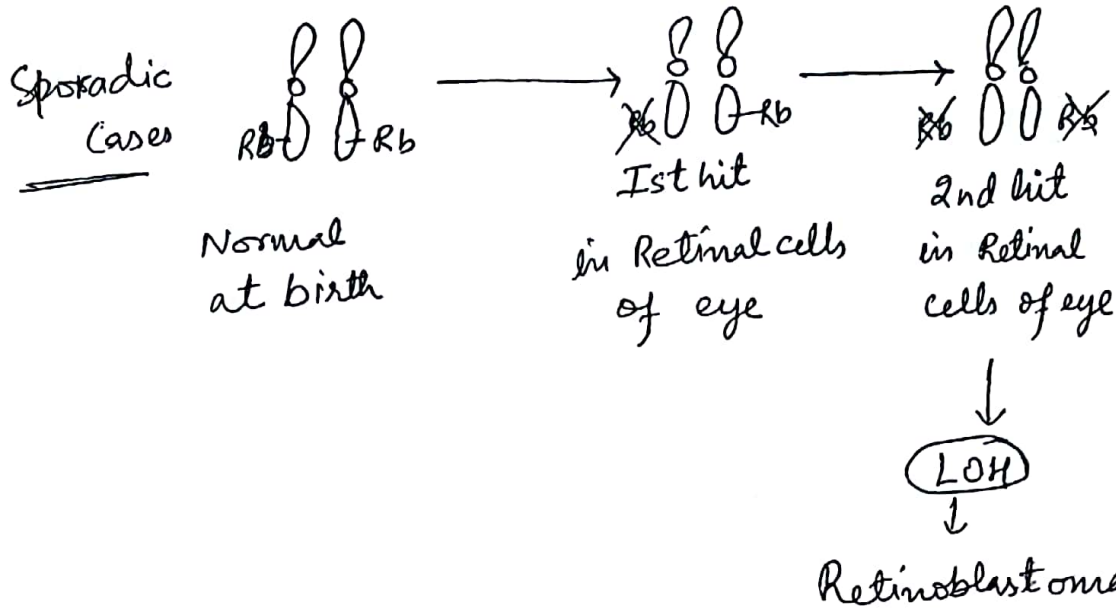 Sporadic
Cases
Rb
Rb
Normal
at birth
Rb
Rb
Ist hit
in Retinal cells
of eye
Rb
Rb
2nd hit
in Retinal
cells of eye
LOH
Retinoblastoma